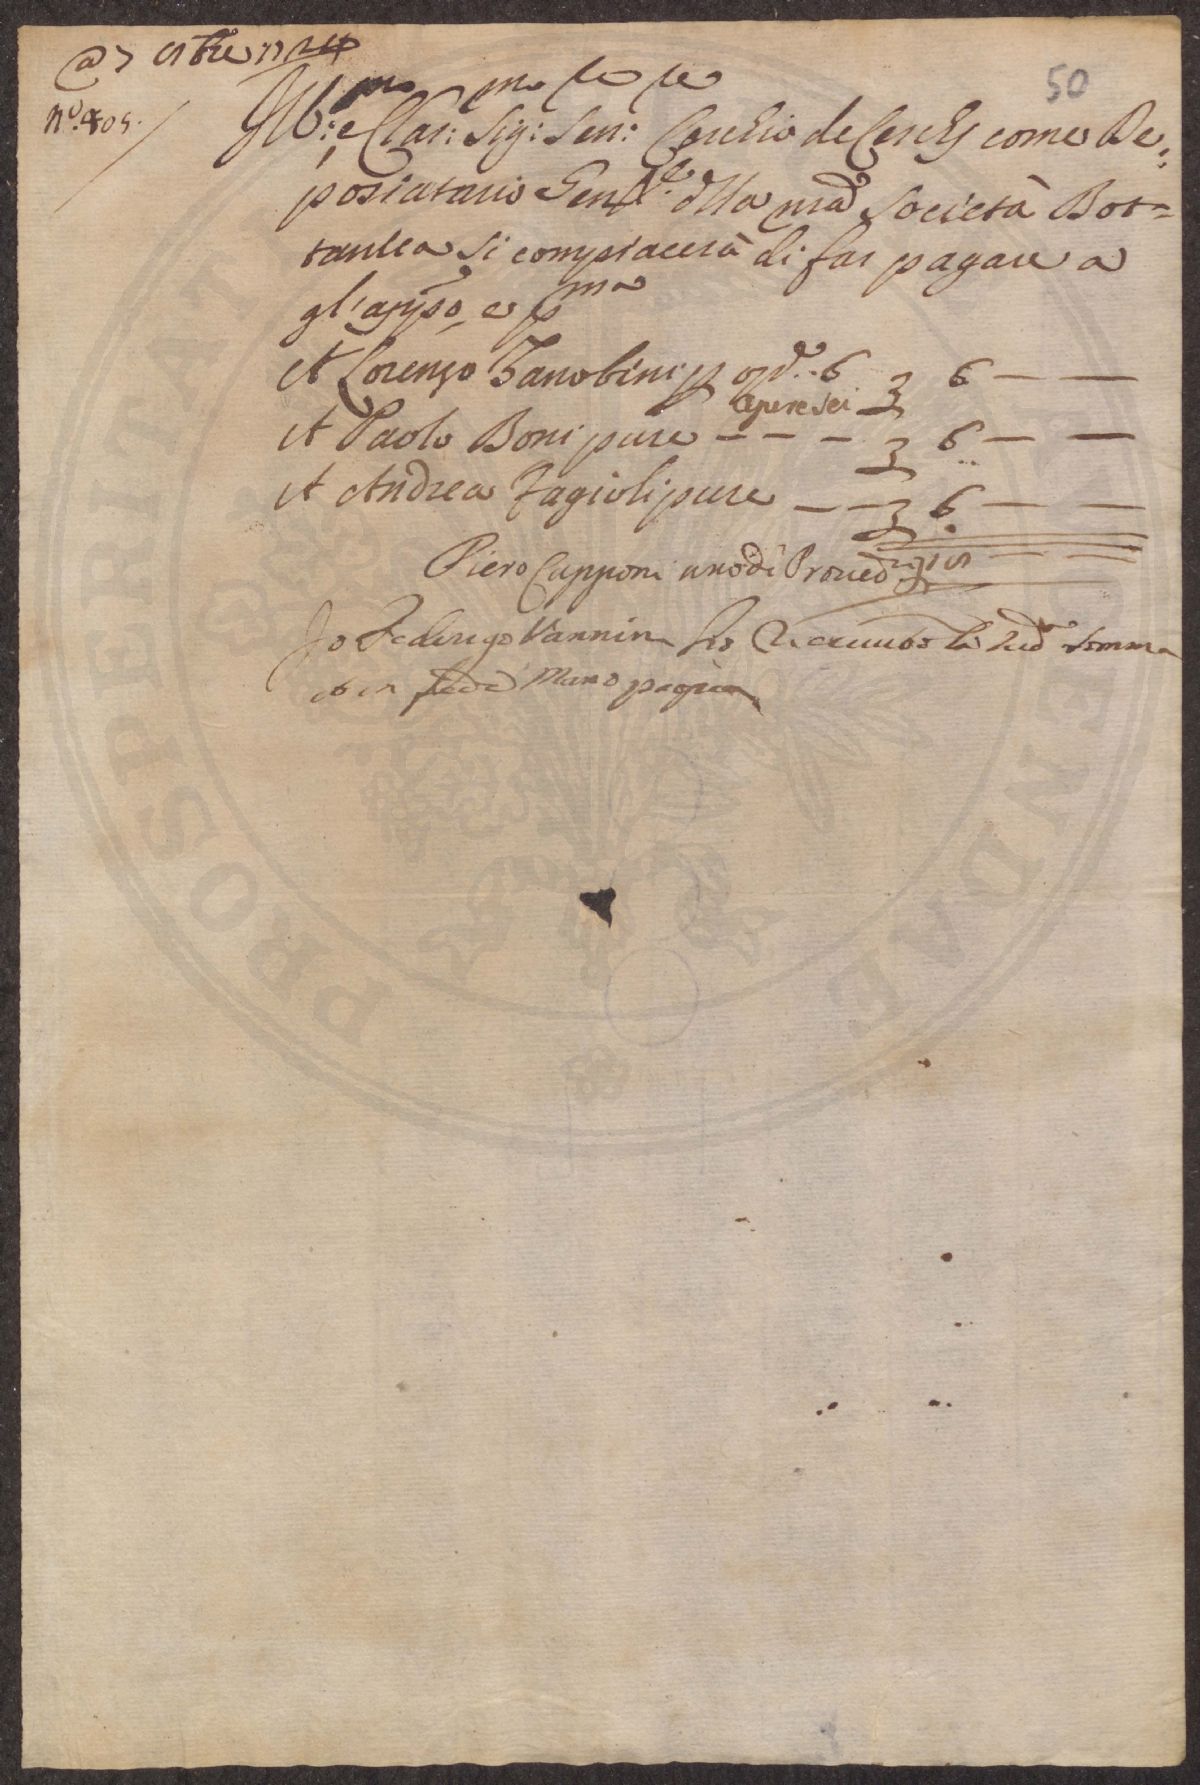 50
N.º 405.
Ill:mo e Clar:mo Sig:re Sen:re Cerchio de Cerchj come De,,
positario Gen.le dlla nrã Società Bot=
tanica si compiacerà di far pagare a
gl'app.º, e p.ma
A Lorenzo Zanobini p op.e 6 £ 6 — —
opere sei
A Paolo Boni pure - - - £ 6 — —
A Andrea Fagioli pure — — £ 6 — —
Piero Capponi uno di Proved.ri
Io Federigo Vannini ho riceuuto la sud.a somma
et in fede mano propria
PROSPERITATI